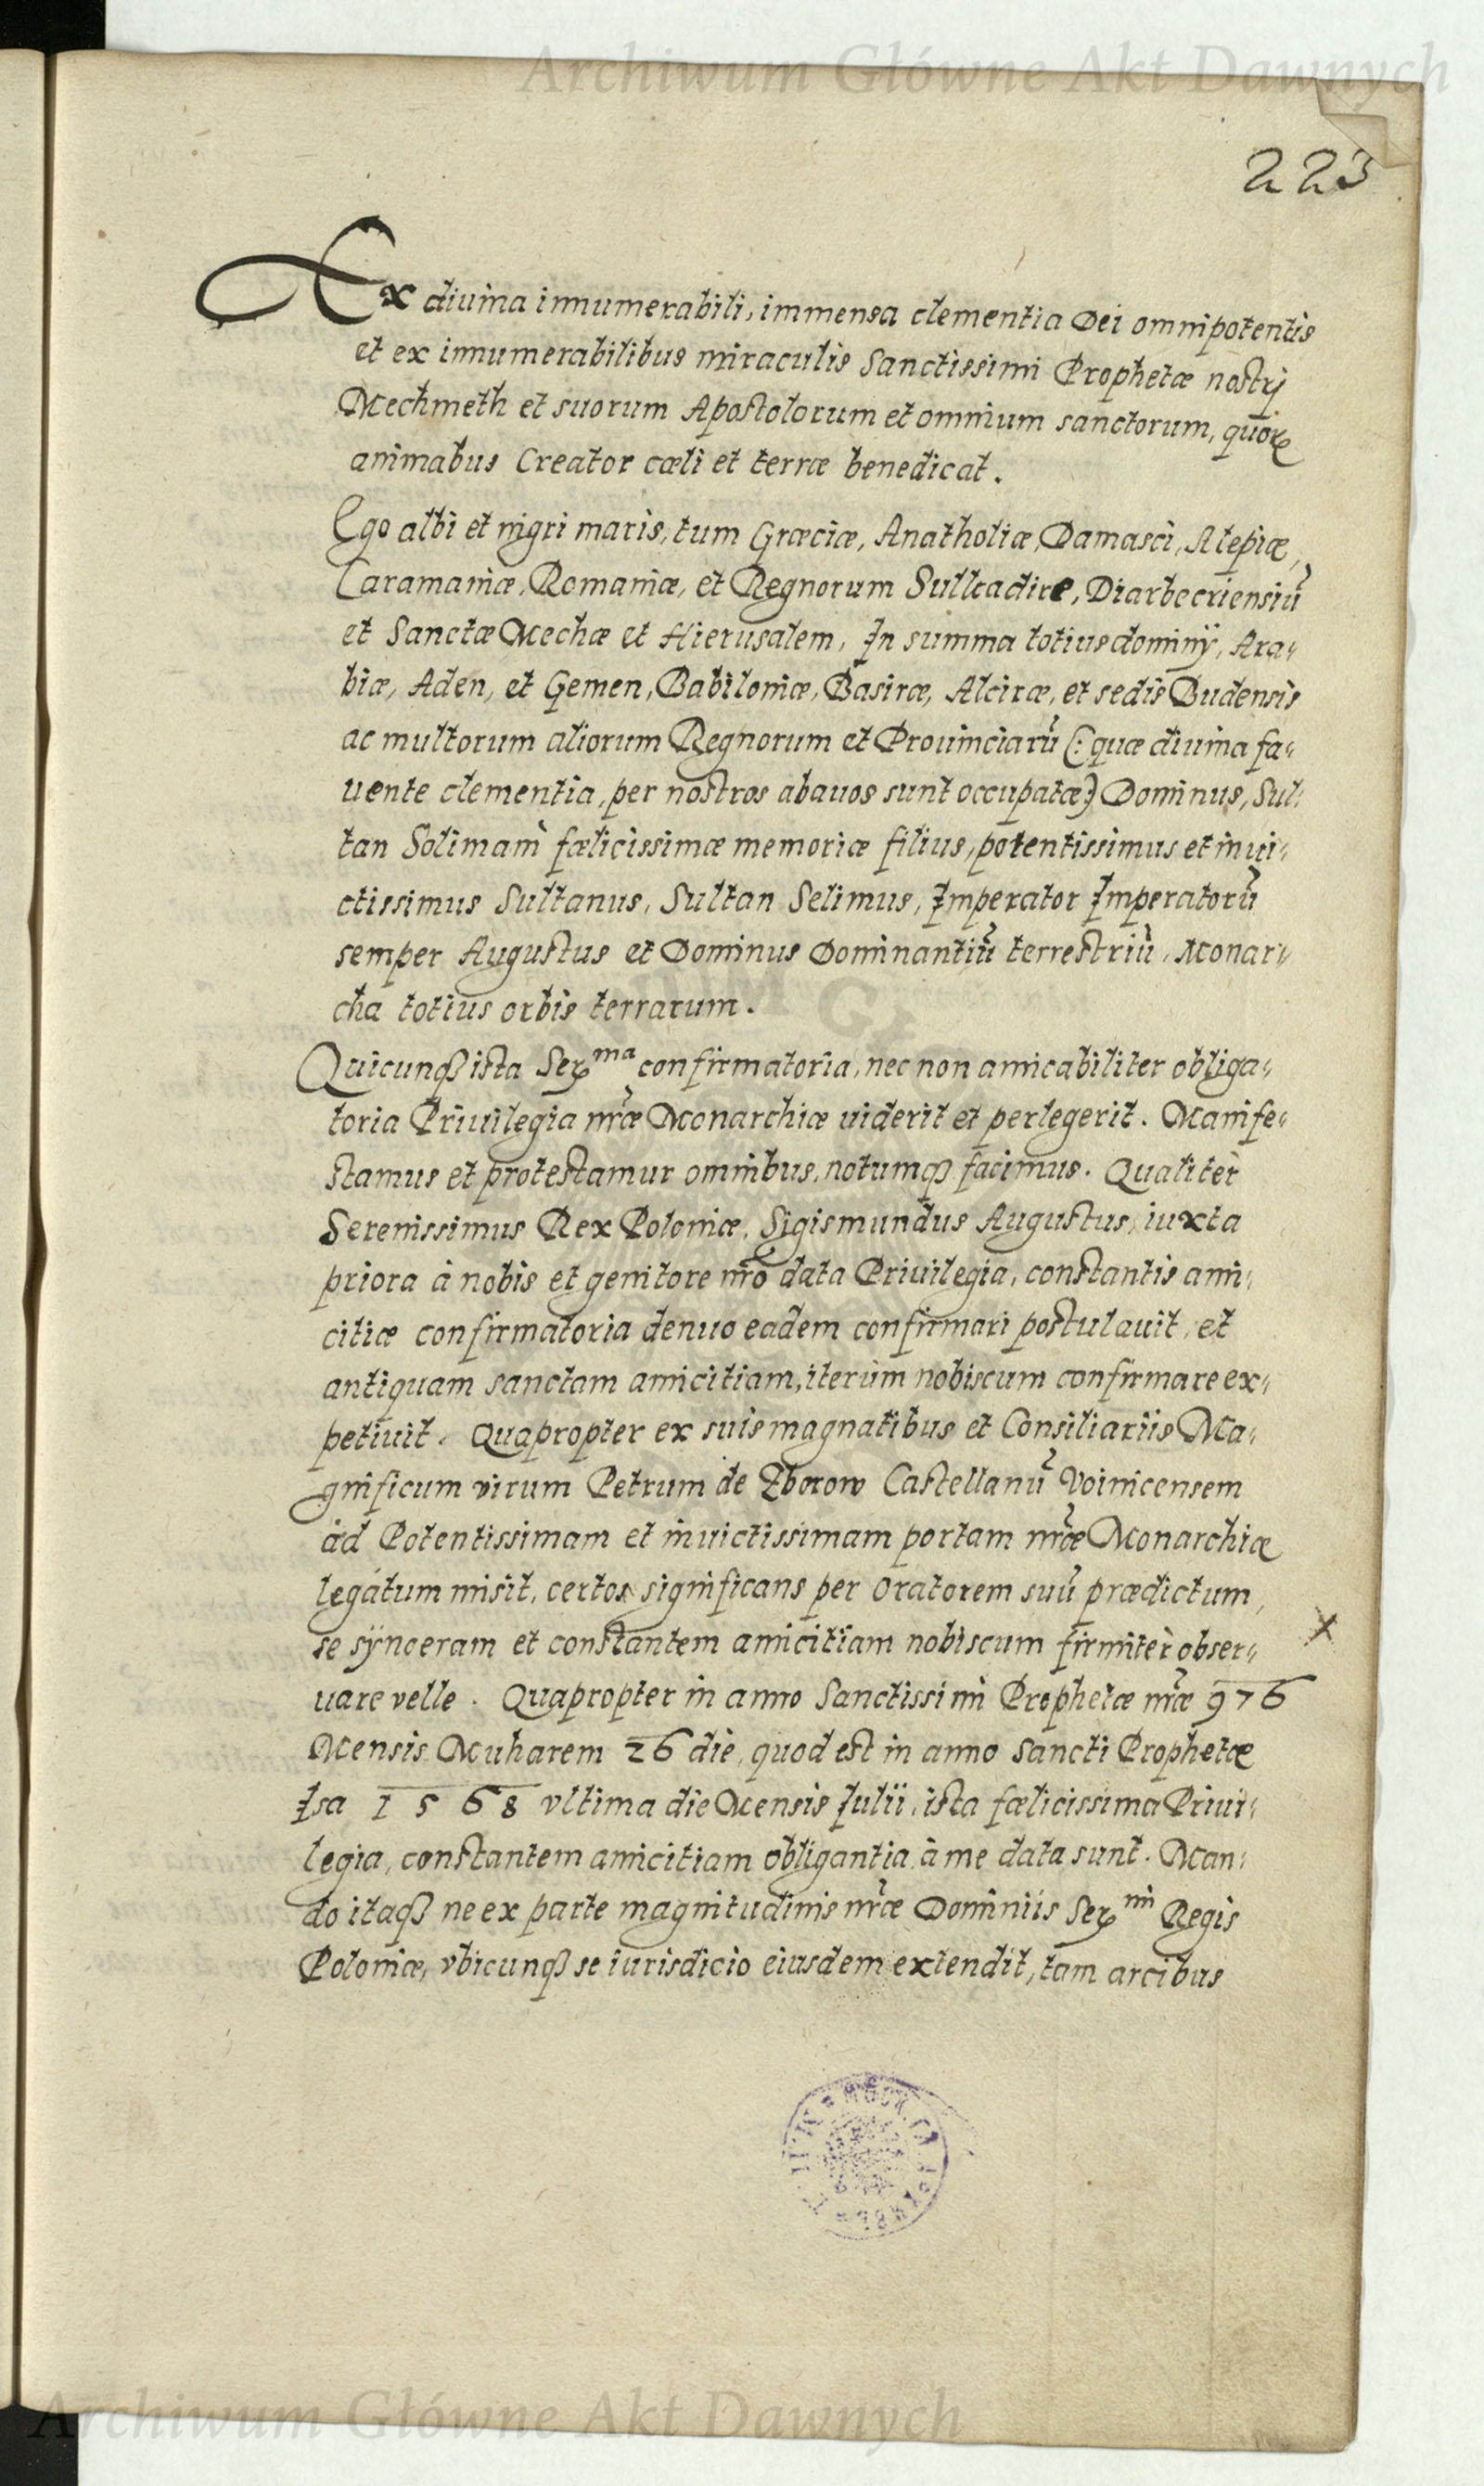 Archiwum Główne Akt Dawnych
223
Ex diuina innumerabili, immensa clementia Dei omnipotentis
et ex innumerabilibus miraculis Sanctissimi Prophetæ nostrj
Mechmeth et suorum Apostolorum et omnium sanctorum, quorꝝ
animabus Creator cæli et terræ benedicat.
Ego albi et nigri maris, tum Græciæ, Anatholiæ, Damasci, Alepiæ,
Caramaniæ, Romaniæ, et Regnorum Sulleadire, Diarbecriensiū
et Sanctæ Mechæ et Hierusalem, In summa totius dominÿ, Ara-
biæ, Aden, et Gemen, Babiloniæ, Basiræ, Alciræ, et sedis Budensis
ac multorum aliorum Regnorum et Prouinciarū (: quæ diuina fa-
uente clementia, per nostros abauos sunt occupatæ) Dominus, Sul-
tan Solimani fælicissimæ memoriæ filius, potentissimus et inui-
ctissimus Sultanus, Sultan Selimus, Imperator Imperatorū
semper Augustus et Dominus Dominantiū terrestriū, Monar-
cha totius orbis terrarum.
Quicunqȝ ista Serᵐᵃ confirmatoria, nec non amicabiliter obliga-
toria Priuilegia nr̄æ Monarchiæ uiderit et perlegerit. Manife-
stamus et protestamur omnibus, notumqȝ facimus. Qualiter
Serenissimus Rex Poloniæ, Sigismundus Augustus, iuxta
priora à nobis et genitore nr̄o data Priuilegia, constantis ami-
citiæ confirmatoria denuo eadem confirmari postulauit, et
antiquam sanctam amicitiam, iterùm nobiscum confirmare ex-
petiuit. Quapropter ex suis magnatibus et Consiliariis Ma-
gnificum virum Petrum de Zborow Castellanū Voinicensem
ad Potentissimam et inuictissimam portam nr̄æ Monarchiæ
legatum misit, certos significans per Oratorem suū prædictum,
se sÿnceram et constantem amicitiam nobiscum firmitèr obser-
uare velle. Quapropter in anno Sanctissimi Prophetæ nr̄æ 976
Mensis Muharem 26 die, quod est in anno Sancti Prophetæ
Isa 1568 vltima die Mensis Iulii, ista fælicissima Priui-
legia, constantem amicitiam obligantia à me data sunt. Man-
do itaqȝ ne ex parte magnitudinis nr̄æ Dominiis Serᵐⁱ Regis
Poloniæ, vbicunqȝ se iurisdicio eiusdem extendit, tam arcibus
Archiwum Główne Akt Dawnych